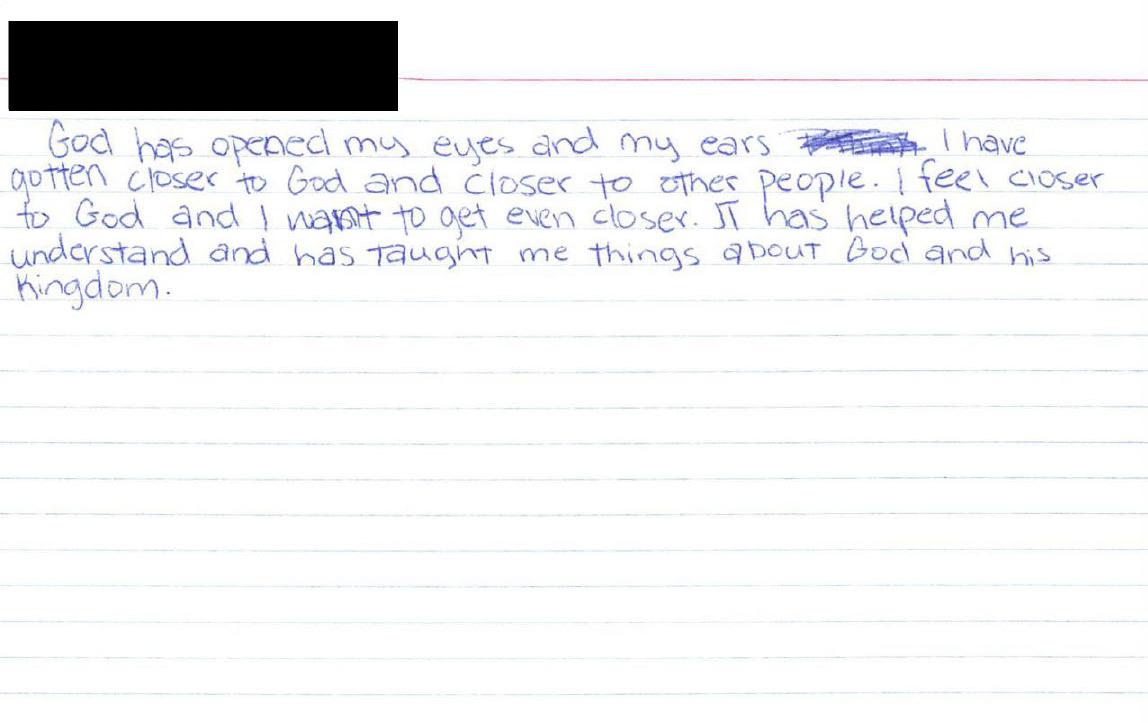 God has opened my eyes and my ears . I have
gotten closer to God and closer to other people. I feel closer
to God and I want to get even closer. It has helped me
understand and has taught me things about God and his
Kingdom.